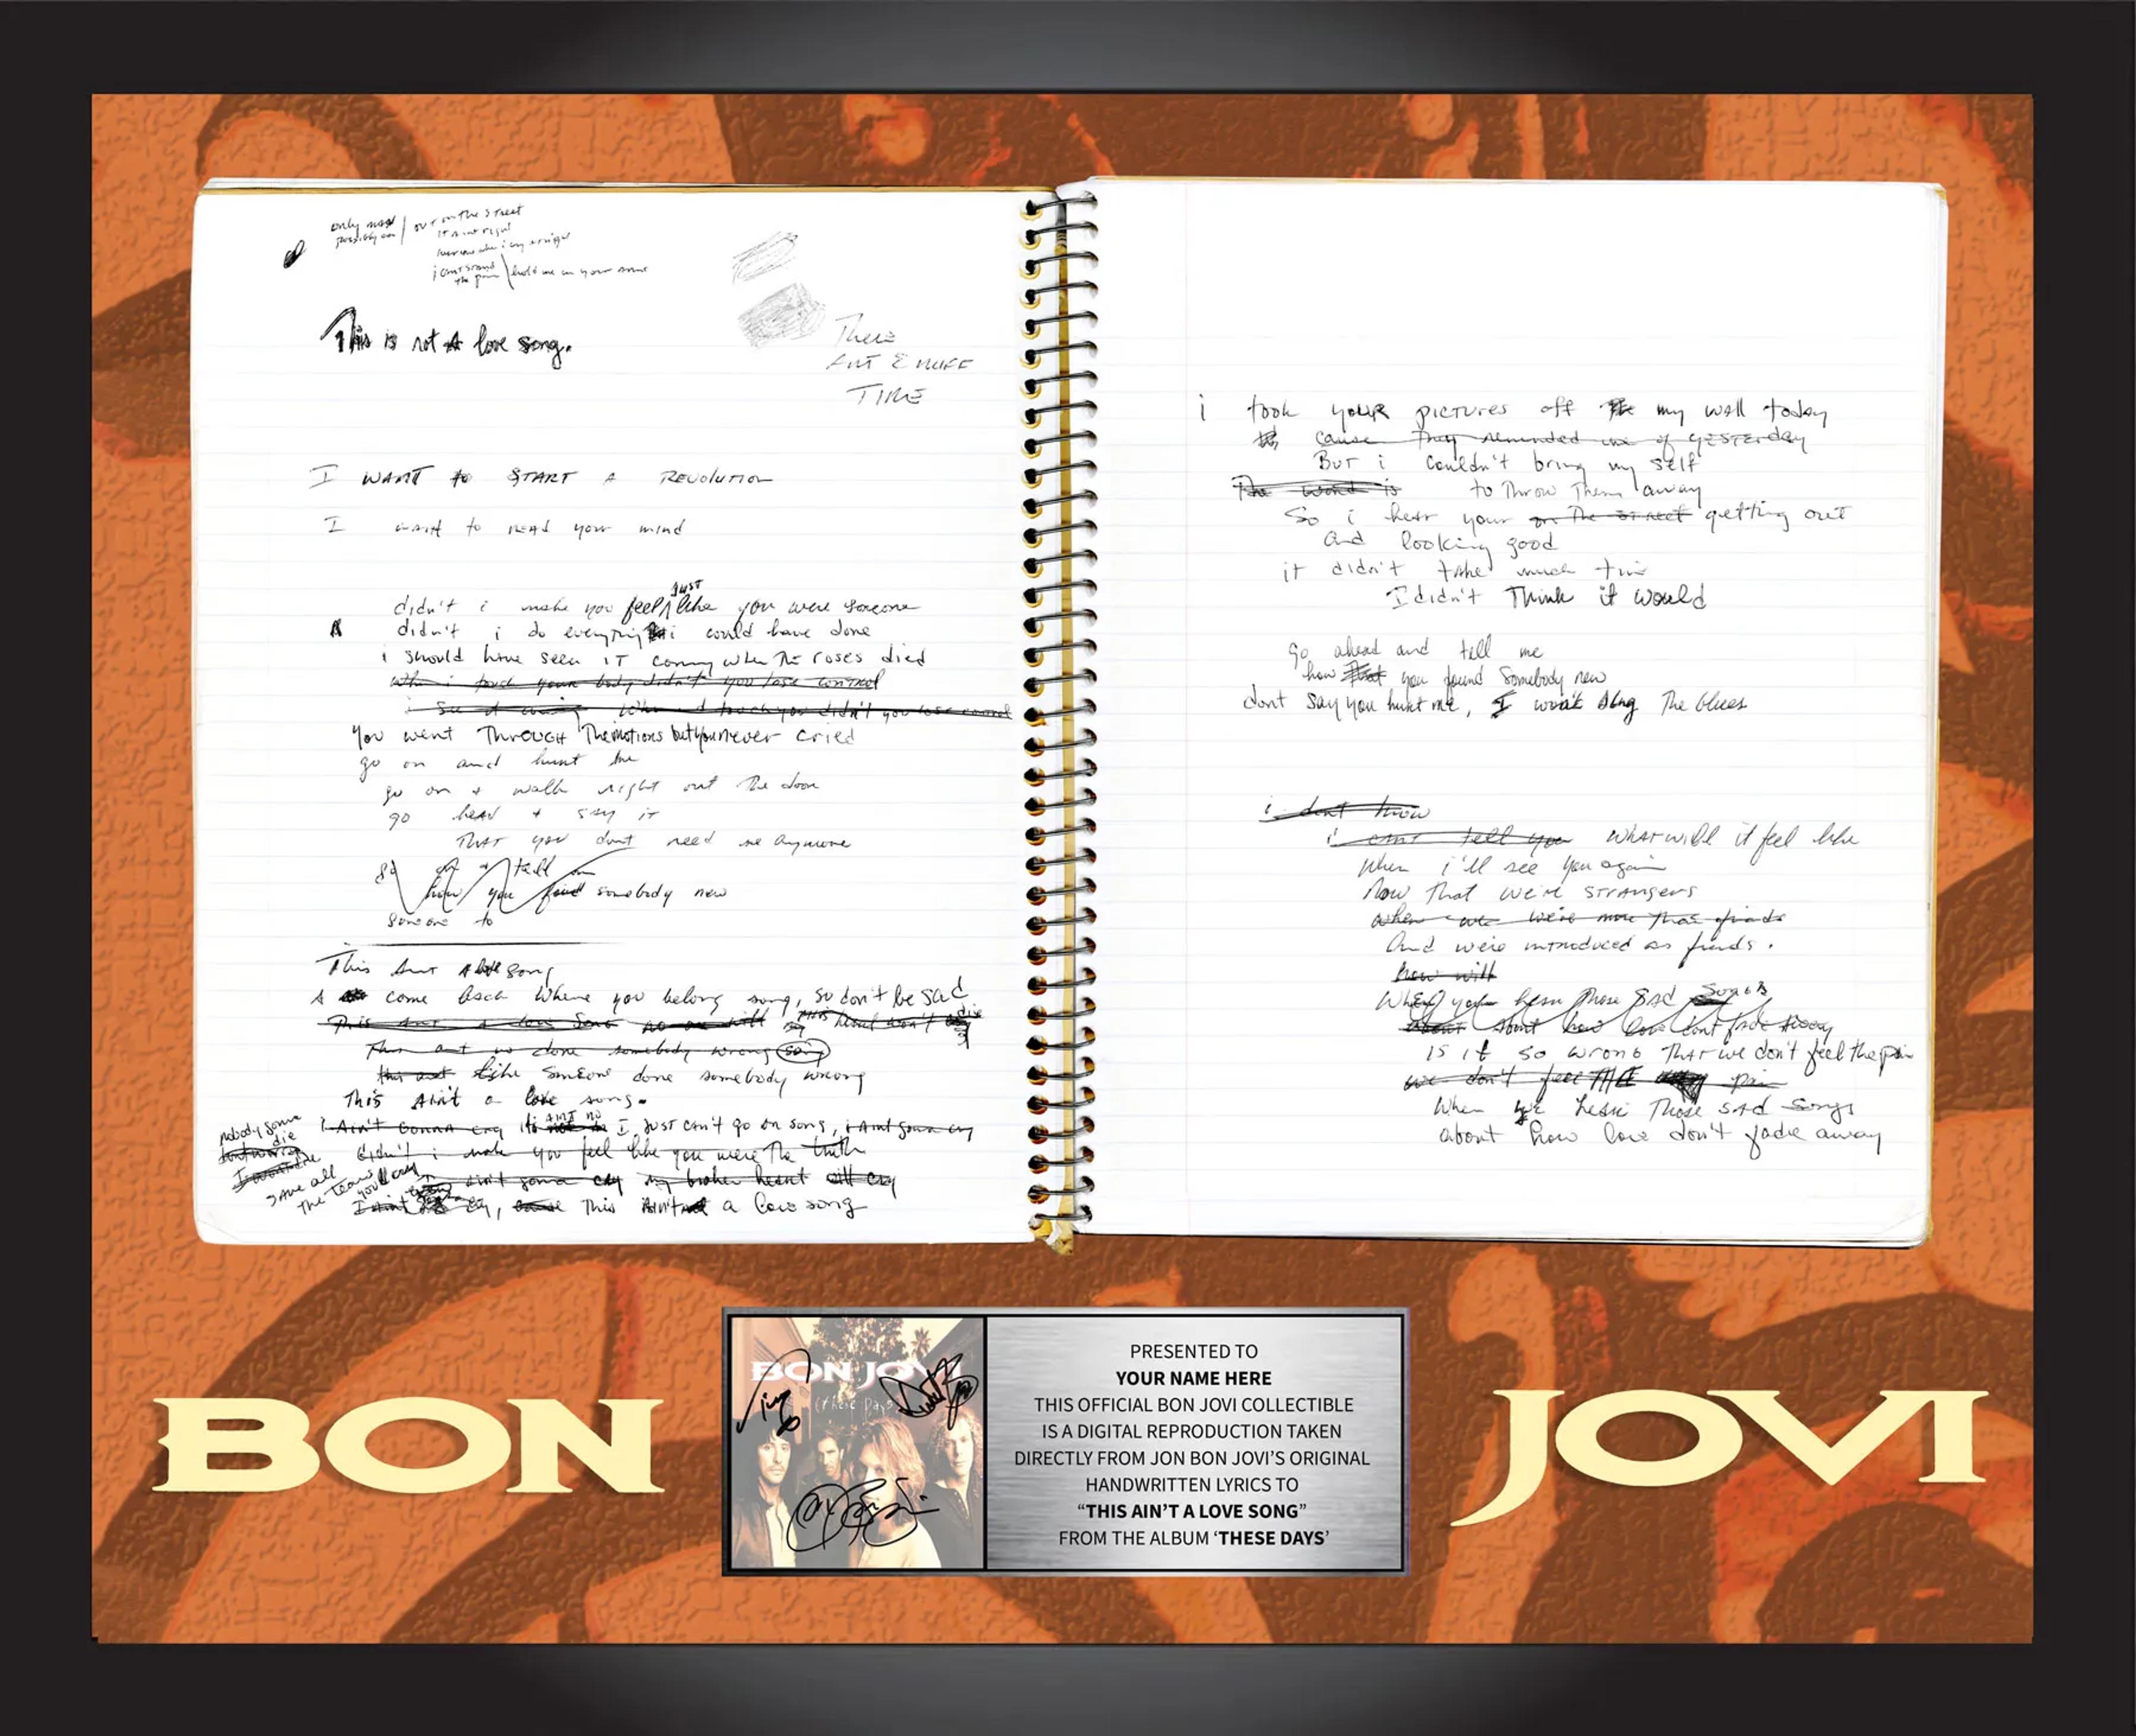 only
out on the street
it aint right
i cant stand
the pain
hold me in your arms
This is not A love song.
There
AINT ENUFF
TIME
I WANT to START A REVOLUTION
I want to read your mind
Just
didn't i make you feel like you were someone
A didn't i do everything i could have done
i should have seen IT coming when The roses died
when i touch your body didn't you lose control
i see it coming when I touch you didn't you lose control
You went THROUGH The motions but you never cried
go on and hurt me
go on + walk right out the door
go head + say it
THAT you don't need me anymore
go on + tell me
how you find somebody new
someone to
This Aint A love song
A come back where you belong song, so don't be sad
This aint a love song no one will say this heart won't die
This aint no done somebody wrong song
this aint like someone done somebody wrong
This Ain't a love song.
I Ain't Gonna cry AINT NO I JUST can't go on song, i Aint gonna cry
nobody gonna
die
didn't i make you feel like you were The truth
SAVE all
The Tears you'll cry
ain't gonna cry my broken heart will cry
I aint cry, cause This Ain't a love song
i took your pictures off the my wall today
cause They reminded me of yesterday
But i couldn't bring my self
The word is to Throw Them away
So i hear your on The street getting out
and looking good
it didn't take much time
I didn't Think it would
go ahead and tell me
how that you found somebody new
dont say you hurt me, I won't sing The blues
i don't know
i cant tell you WHAT will it feel like
when i'll see you again
Now That we're STRANGERS
when we were more than friends
And we're introduced as friends.
how will
When you hear Those SAD Songs
about how love don't fade away
is it so wrong THAT we don't feel the pain
we don't feel THE pain
When we hear Those sad songs
about how love don't fade away
BON JOVI
BON JOVI
(These Days)
PRESENTED TO
YOUR NAME HERE
THIS OFFICIAL BON JOVI COLLECTIBLE
IS A DIGITAL REPRODUCTION TAKEN
DIRECTLY FROM JON BON JOVI'S ORIGINAL
HANDWRITTEN LYRICS TO
“THIS AIN'T A LOVE SONG”
FROM THE ALBUM ‘THESE DAYS’